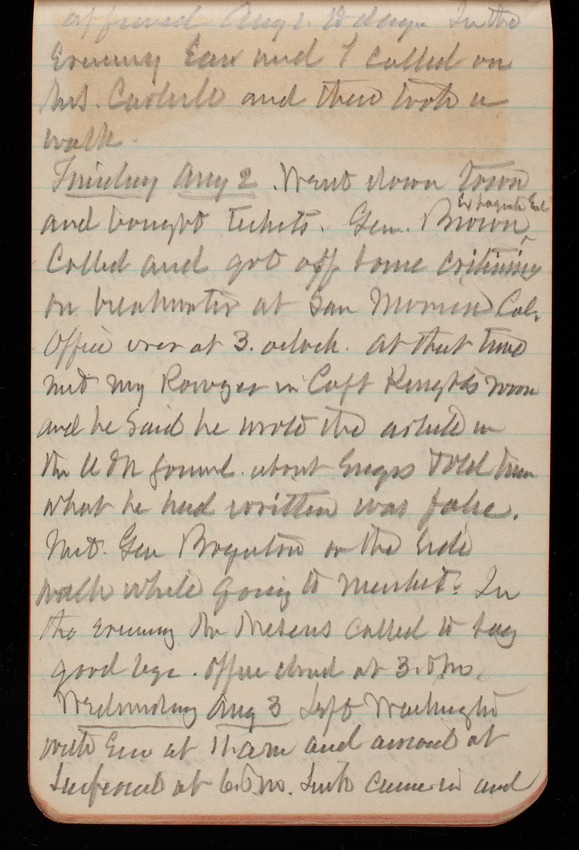 approved Aug 1. 10 days. In the
Evening Eva and I called on
Mrs. Carlisle and then took a
walk.
Tuesday Aug 2. Went down town
and bought tickets. Gen. Brown
Called and got off some
on breakwater at San
Office over at 3. oclock. At that time
met my in Capt Knights room
and he said he wrote the article in
the about Engrs Told him
what he had written was false.
Met Gen Boynton on the side
walk while going to market. In
the evening called to say
good bye. Office closed at 3. P.M.
Wednesday Aug 3 Left Washington
with Eva at 11 am and arrived at
at 6. P.M. and